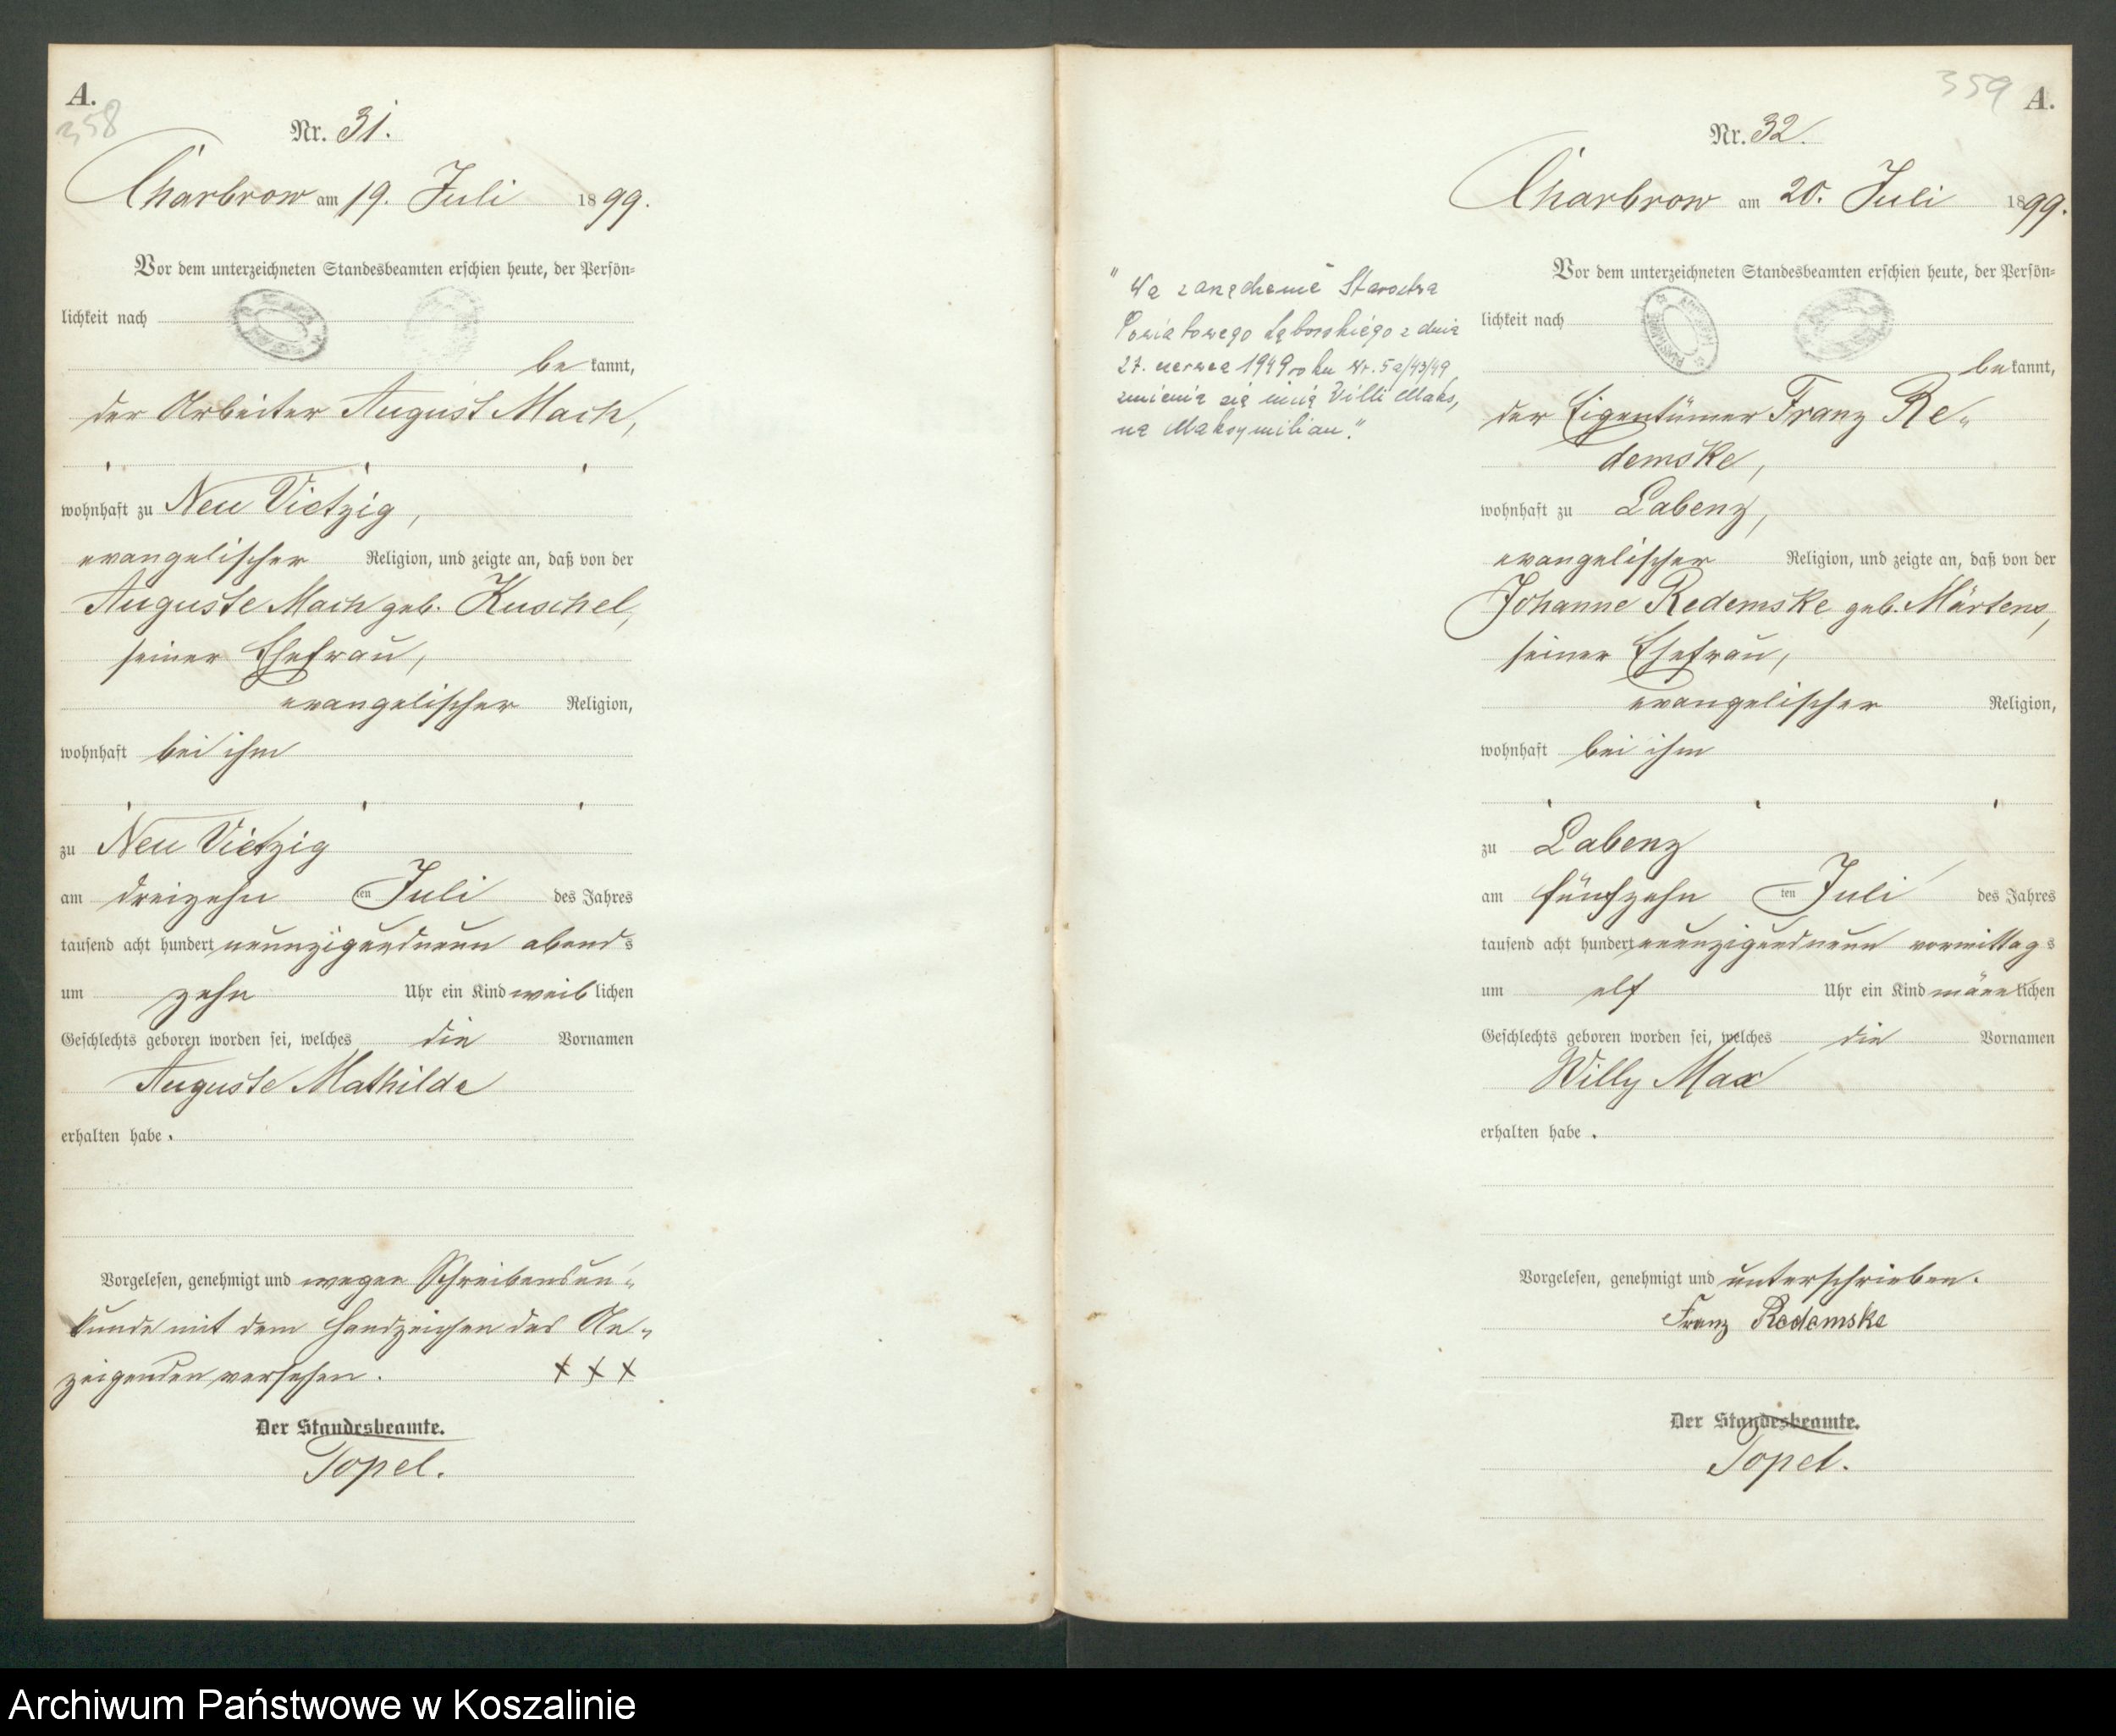 A.
358
Nr. 31.
Charbrow am 19. Juli 1899.
Vor dem unterzeichneten Standesbeamten erschien heute, der Persön-
lichkeit nach
be kannt,
der Arbeiter August Mach,
wohnhaft zu Neu Vietzig,
evangelischer Religion, und zeigte an, daß von der
Auguste Mach geb. Kuschel,
seiner Ehefrau,
evangelischer Religion,
wohnhaft bei ihm
zu Neu Vietzig
am dreizehn ten Juli des Jahres
tausend acht hundert neunzigundneun abends
um zehn Uhr ein Kind weiblichen
Geschlechts geboren worden sei, welches die Vornamen
Auguste Mathilde
erhalten habe.
Vorgelesen, genehmigt und wegen Schreibensun-
kunde mit dem Handzeichen des An-
zeigenden versehen. + + +
Der Standesbeamte.
Topel.
359
A.
Nr. 32.
Charbrow am 20. Juli 1899.
"Na zarządzenie Starostwa
Powiatowego Lęborskiego z dnia
27. czerwca 1949 roku Nr. 5a/43/49
zmienia się imię Villi Maks,
na Maksymilian."
Vor dem unterzeichneten Standesbeamten erschien heute, der Persön-
lichkeit nach
be kannt,
der Eigentümer Franz Re-
demske,
wohnhaft zu Labenz,
evangelischer Religion, und zeigte an, daß von der
Johanne Redemske geb. Märtens,
seiner Ehefrau,
evangelischer Religion,
wohnhaft bei ihm
zu Labenz
am fünfzehn ten Juli des Jahres
tausend acht hundert neunzigundneun vormittags
um elf Uhr ein Kind männlichen
Geschlechts geboren worden sei, welches die Vornamen
Willy Max
erhalten habe.
Vorgelesen, genehmigt und unterschrieben.
Franz Redemske
Der Standesbeamte.
Topel.
Archiwum Państwowe w Koszalinie